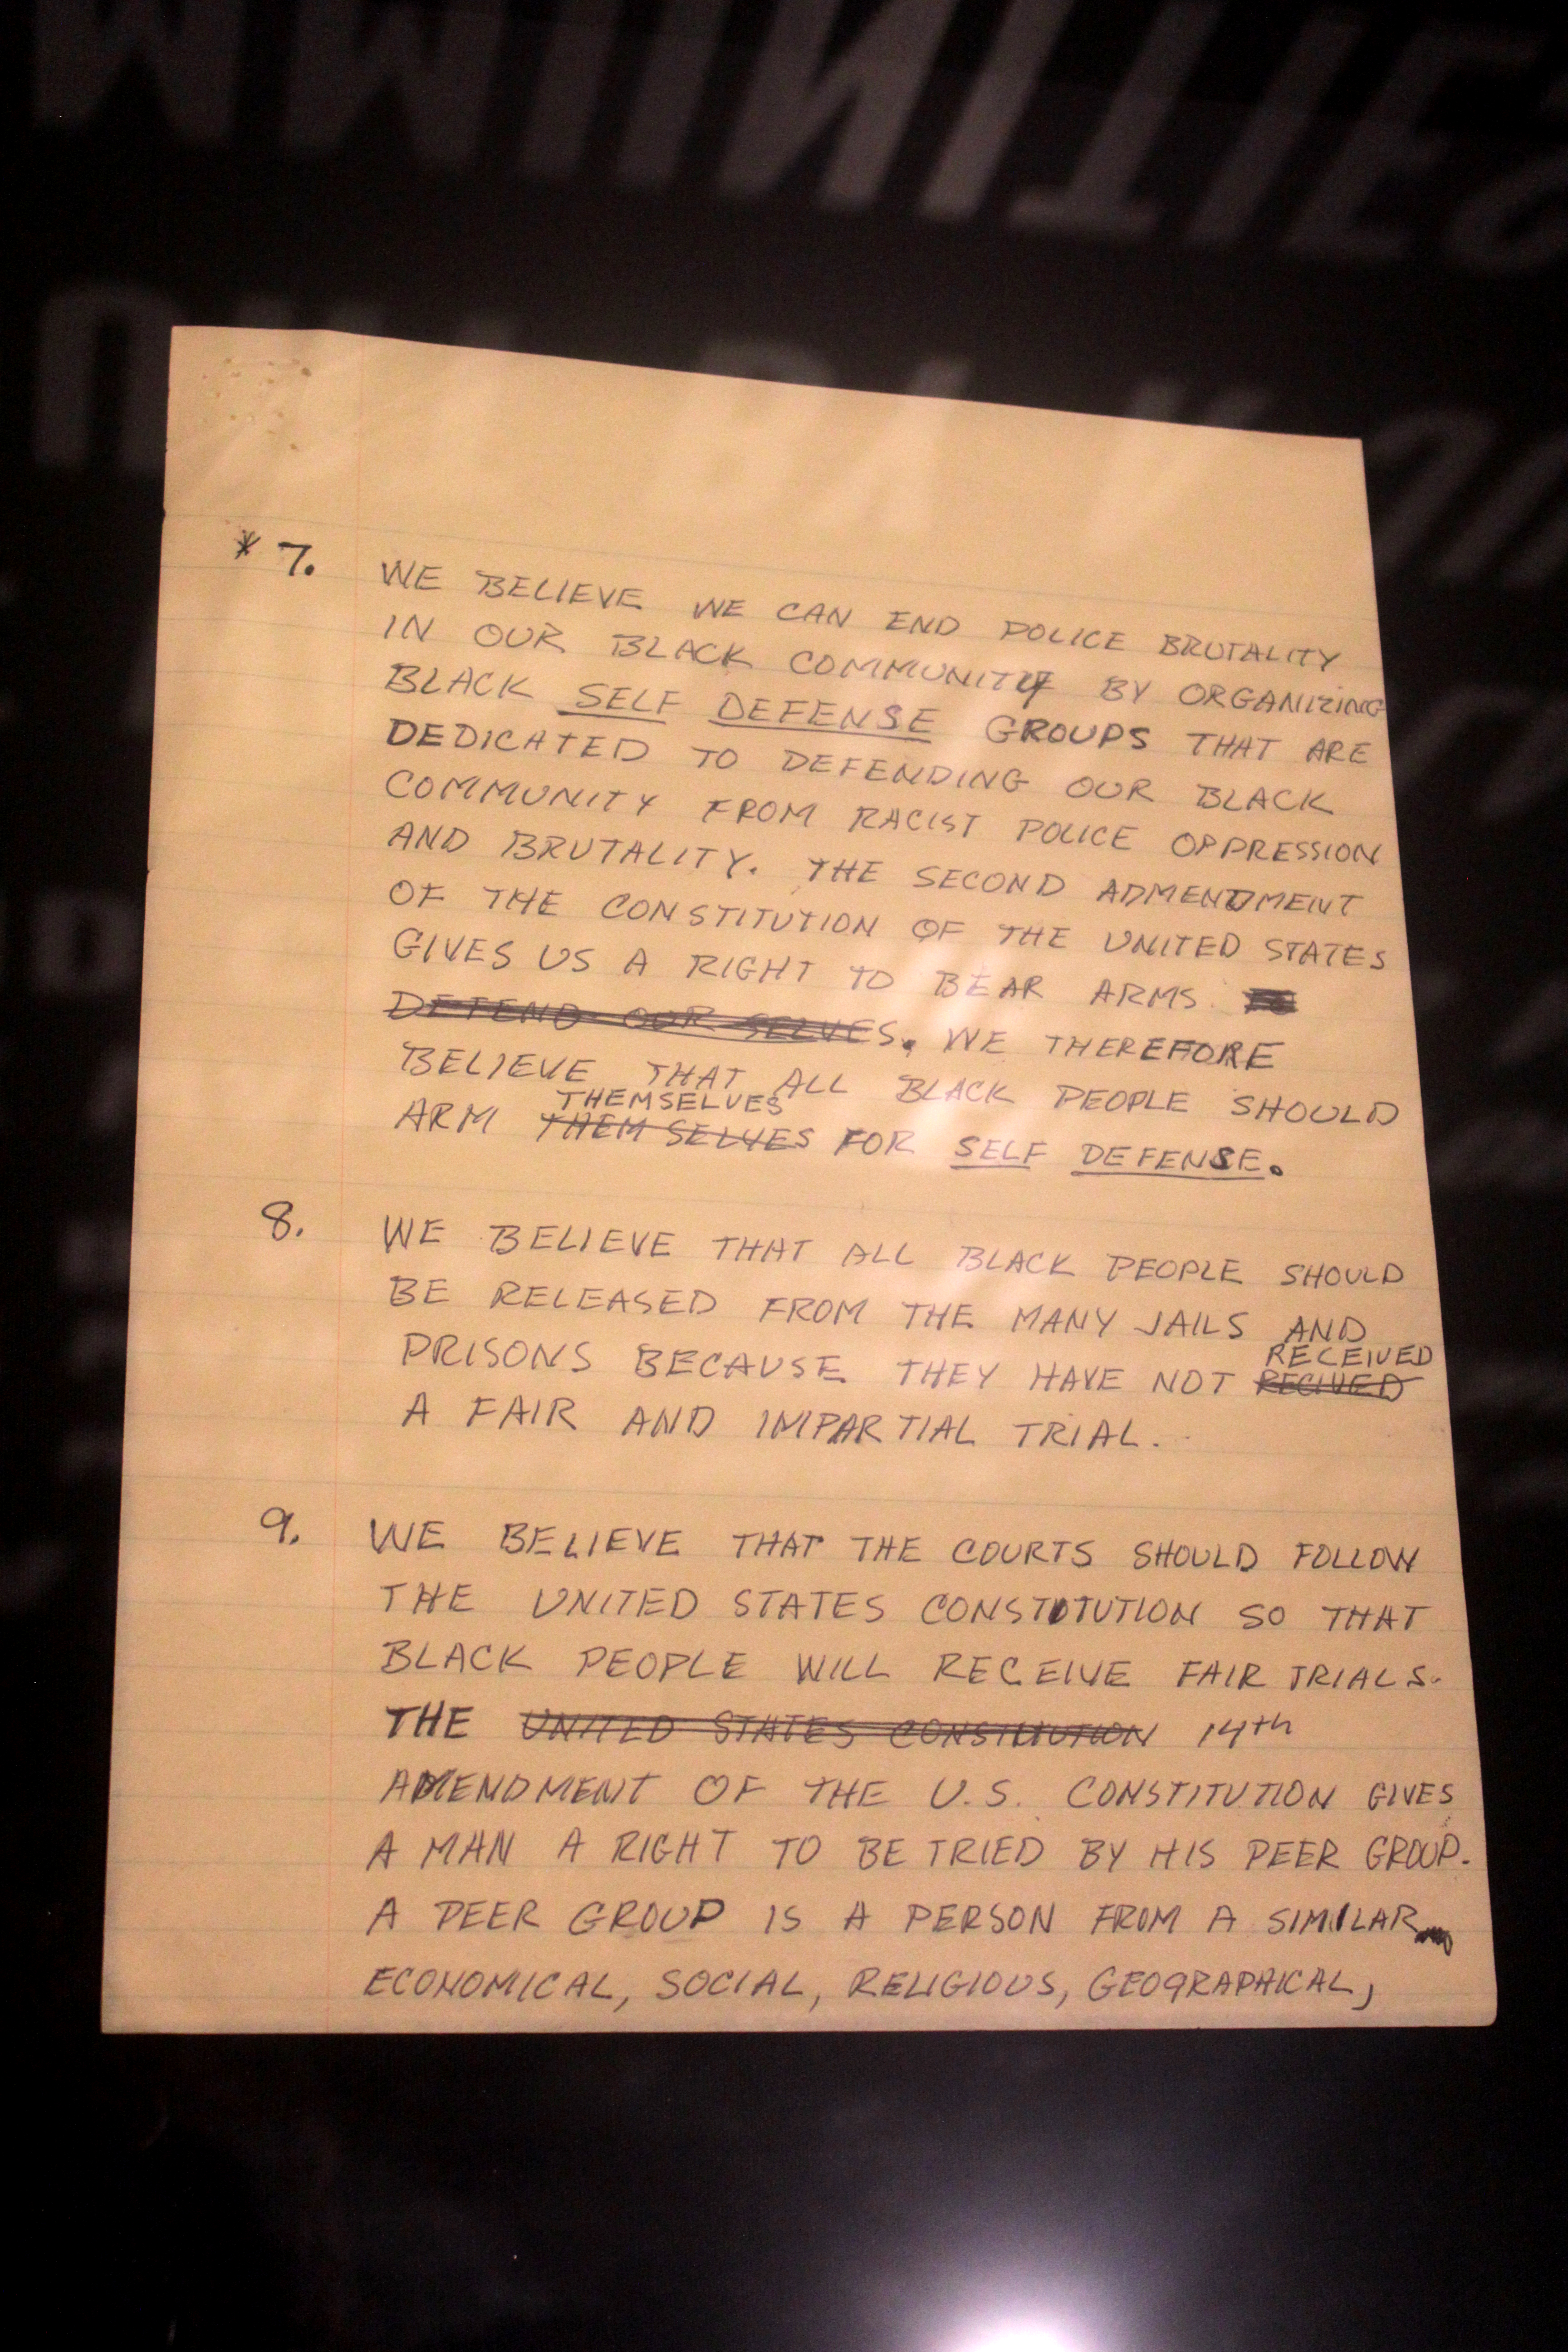 * 7. WE BELIEVE WE CAN END POLICE BRUTALITY
IN OUR BLACK COMMUNITY BY ORGANIZING
BLACK SELF DEFENSE GROUPS THAT ARE
DEDICATED TO DEFENDING OUR BLACK
COMMUNITY FROM RACIST POLICE OPPRESSION
AND BRUTALITY. THE SECOND ADMENDMENT
OF THE CONSTITUTION OF THE UNITED STATES
GIVES US A RIGHT TO BEAR ARMS.
DEFEND OUR SELVES. WE THEREFORE
BELIEVE THAT ALL BLACK PEOPLE SHOULD
THEMSELVES
ARM THEM SELVES FOR SELF DEFENSE.
8. WE BELIEVE THAT ALL BLACK PEOPLE SHOULD
BE RELEASED FROM THE MANY JAILS AND
RECEIVED
PRISONS BECAUSE THEY HAVE NOT RECIVED
A FAIR AND IMPARTIAL TRIAL.
9. WE BELIEVE THAT THE COURTS SHOULD FOLLOW
THE UNITED STATES CONSTITUTION SO THAT
BLACK PEOPLE WILL RECEIVE FAIR TRIALS.
THE UNITED STATES CONSTITUTION 14th
AMENDMENT OF THE U.S. CONSTITUTION GIVES
A MAN A RIGHT TO BE TRIED BY HIS PEER GROUP.
A PEER GROUP IS A PERSON FROM A SIMILAR
ECONOMICAL, SOCIAL, RELIGIOUS, GEOGRAPHICAL,